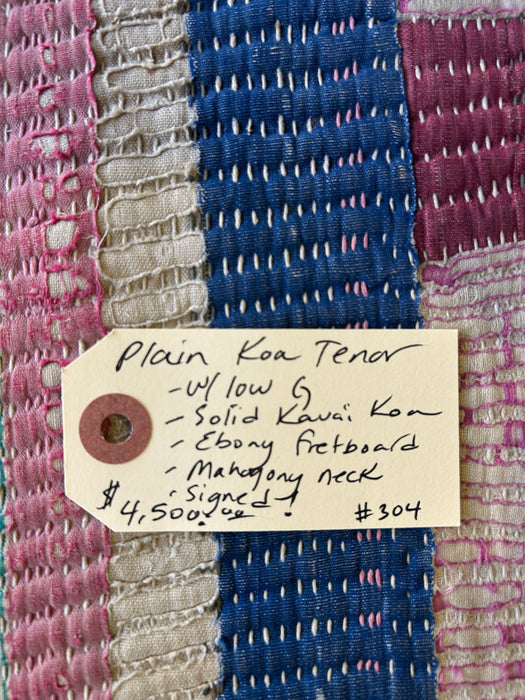 Plain Koa Tenor
- w/ low G
- Solid Kaua'i Koa
- Ebony fretboard
- Mahogony neck
- Signed!
$4,500.00
#304